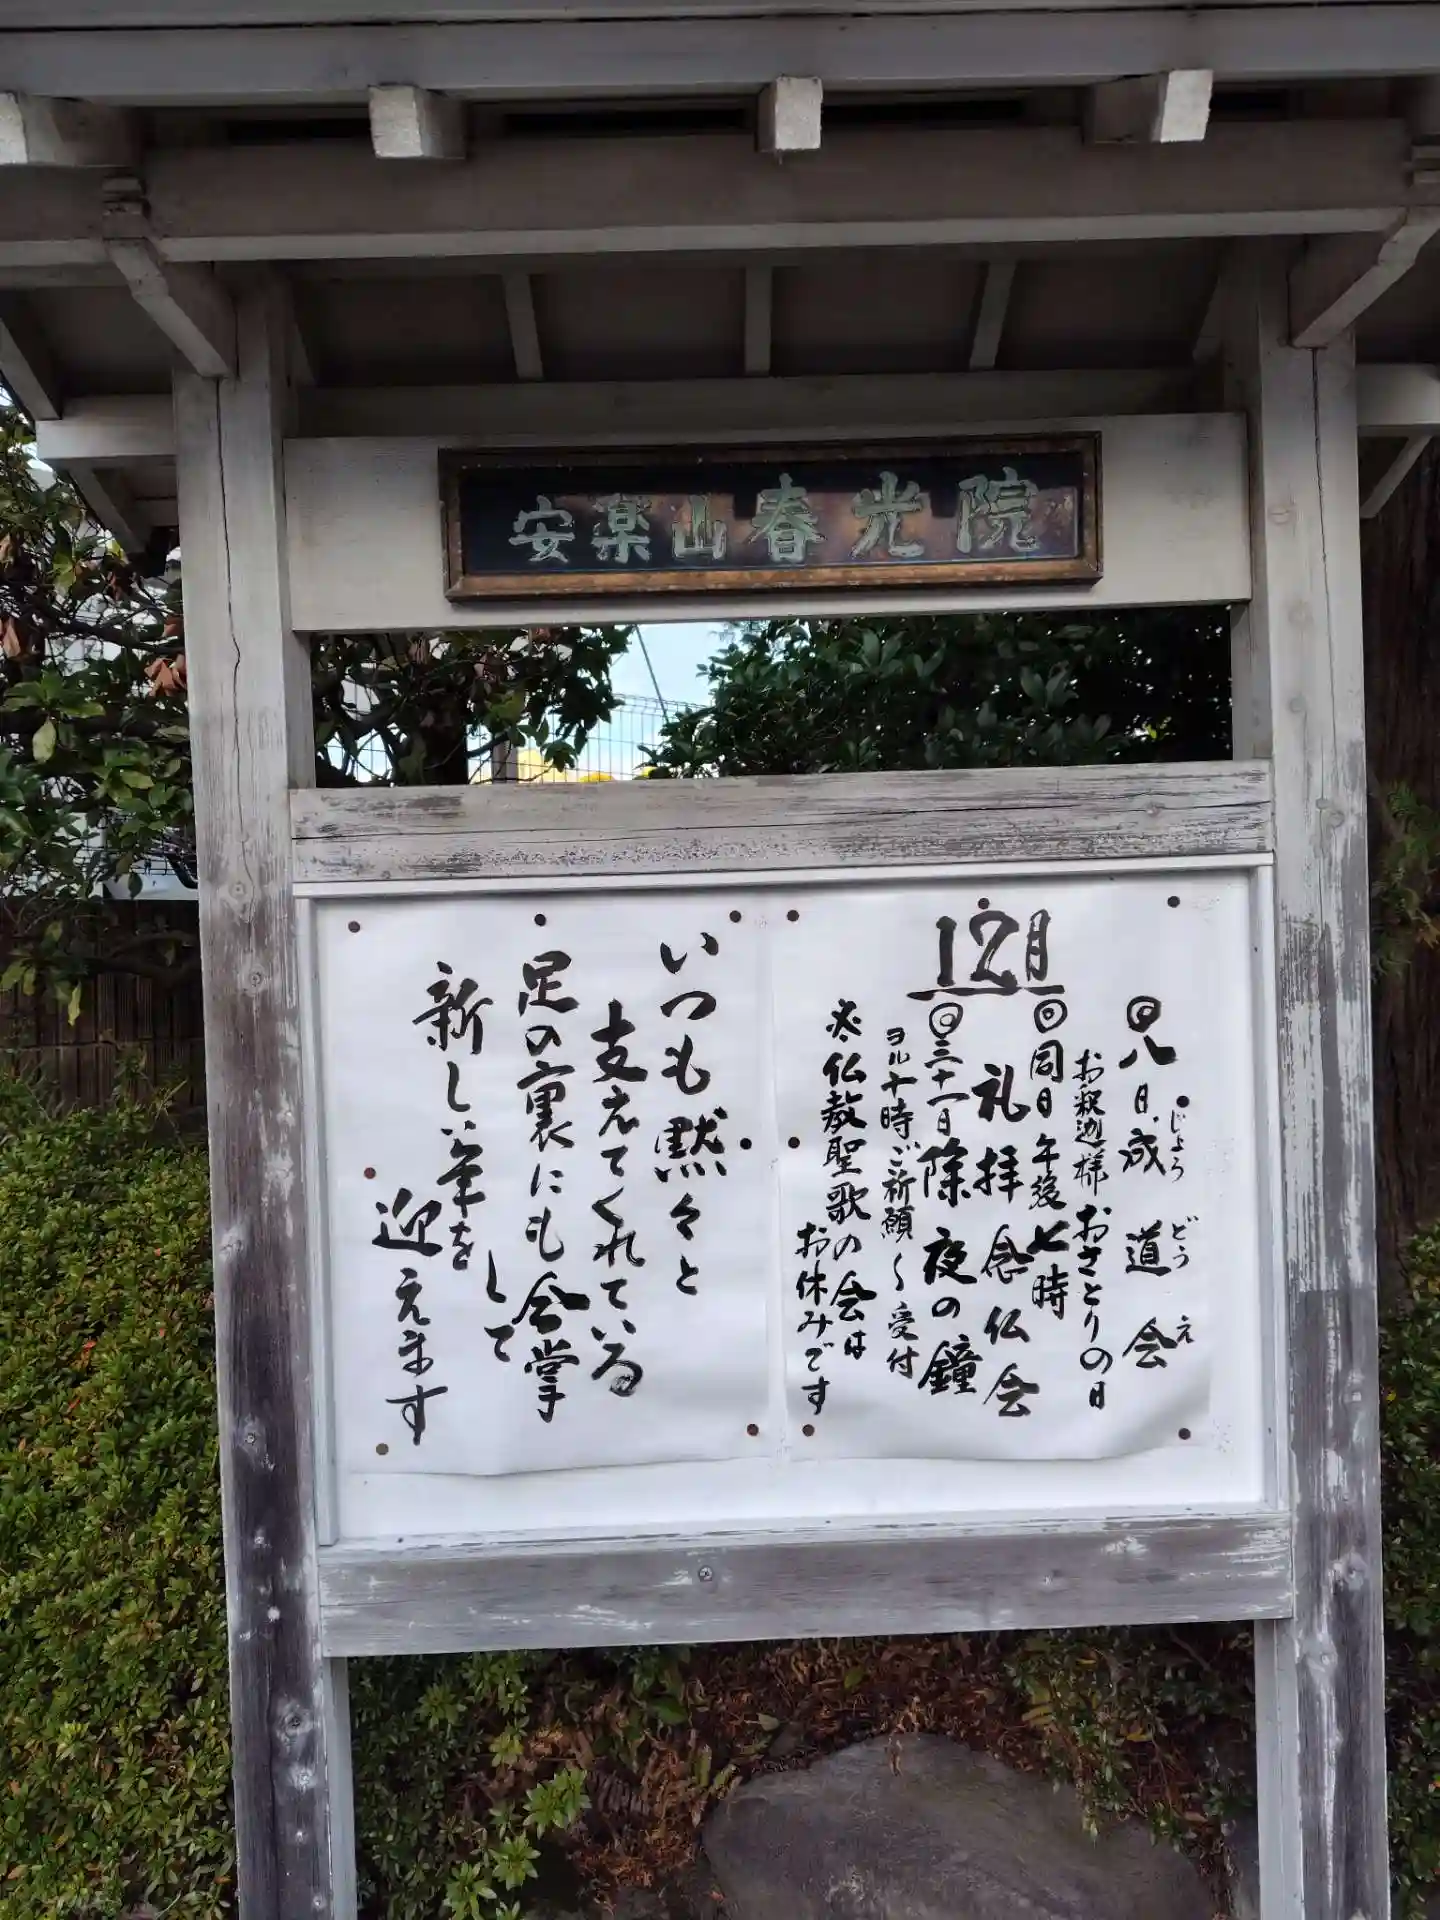 安楽山春光院
12月
◎八日、成道会
じょうどうえ
お釈迦様おさとりの日
◎同日午後七時
礼拝念仏会
◎三十一日除夜の鐘
ヨル十時ご祈願〜受付
※仏教聖歌の会は
お休みです
いつも黙々と
支えてくれている
足の裏にも合掌
して
新しい年を
迎えます